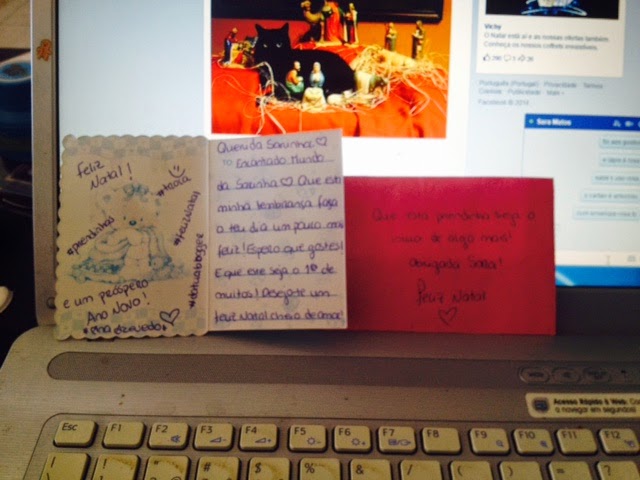 Vichy
O Natal está aí e as nossas ofertas também.
Conheça os nossos coffrets irresistíveis.
Português (Portugal) · Privacidade · Termos
Cookies · Publicidade · Mais
Facebook © 2014
Sara Matos
Feliz
Natal!
#prendinhas
#feliznatal
e um próspero
Ano Novo!
Querida Sarinha ♡
TO Encantado Mundo
da Sarinha ♡ Que esta
minha lembrança faça
o teu dia um pouco mais
feliz! Espero que gostes!
E que este seja o 1º de
muitos! Desejo-te um
feliz Natal cheio de amor!
Que esta prendinha seja o
início de algo mais!
Obrigada Sara!
Feliz Natal
♡
Acesso Rápido à Web:
a navegar em segundos
Esc F1 F2 F3 F4 F5 F6 F7 F8 F9 F10 F11 F12
! " # $ % & / ( ) =